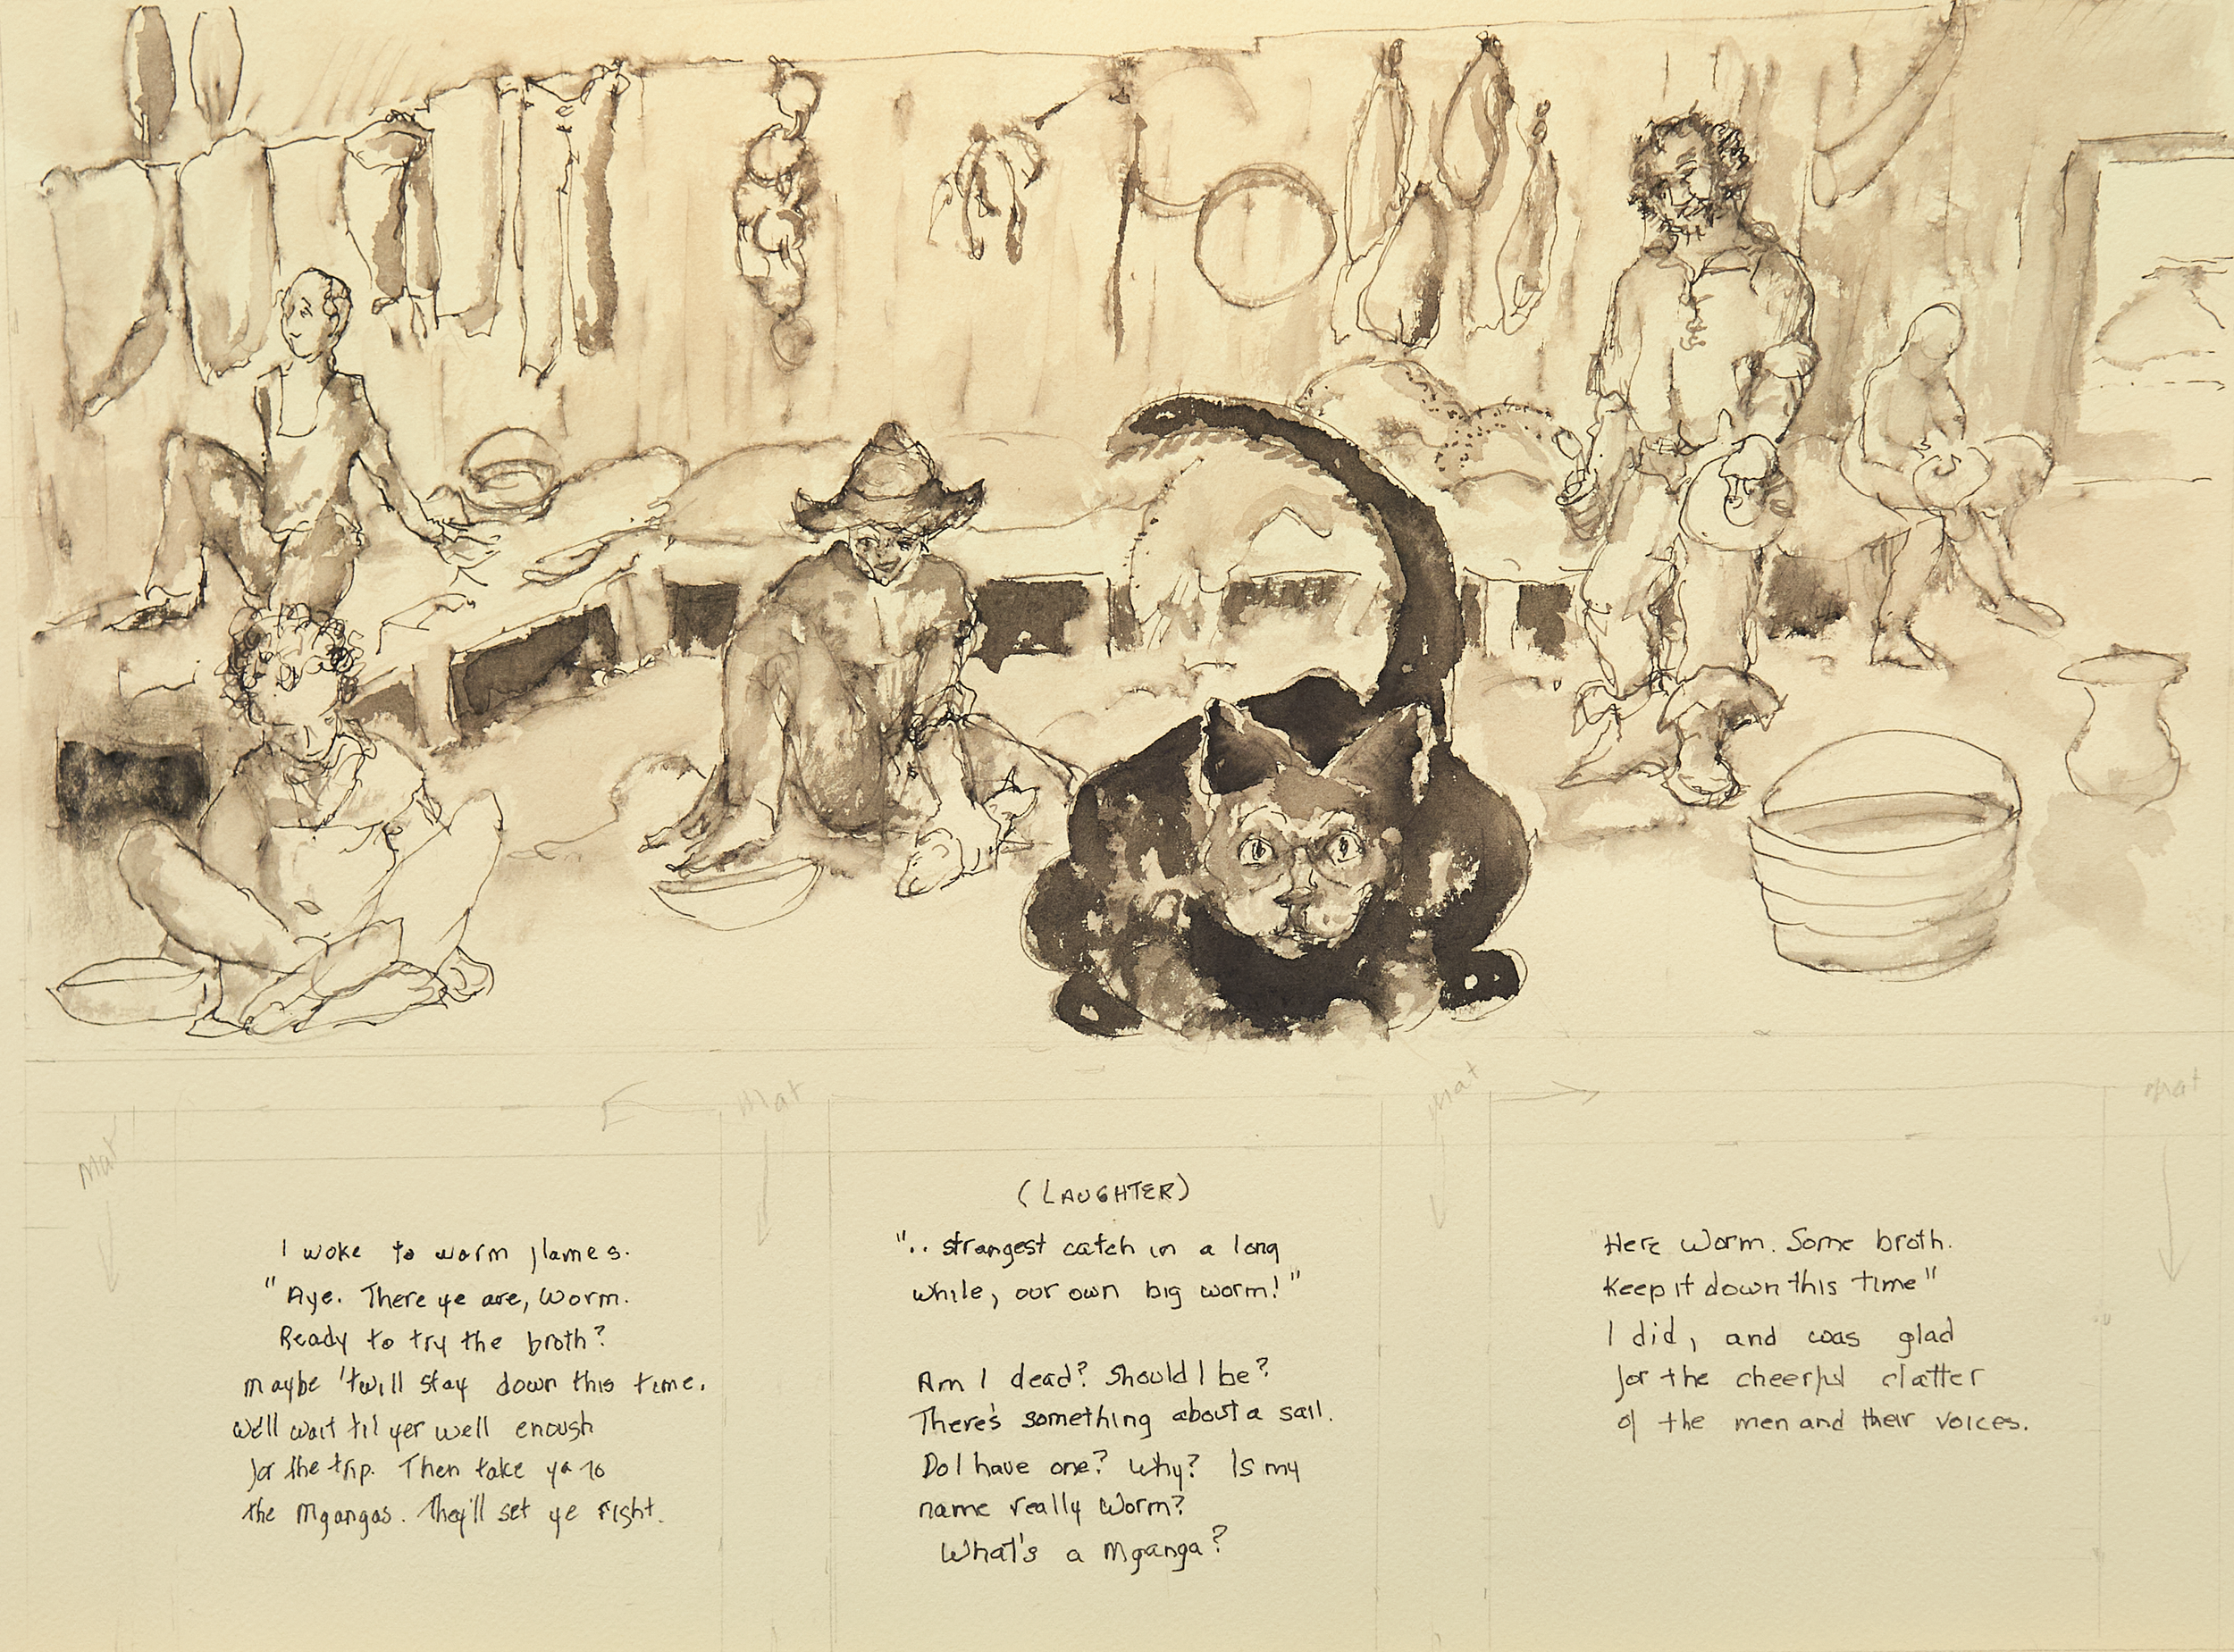 mat
mat
mat
mat
I woke to warm flames.
"Aye. There ye are, Worm.
Ready to try the broth?
maybe 'twill stay down this time.
We'll wait til yer well enough
for the trip. Then take ya to
the Mgangas. They'll set ye right.
(LAUGHTER)
".. strangest catch in a long
while, our own big worm!"
Am I dead? Should I be?
There's something about a sail.
Do I have one? Why? Is my
name really Worm?
What's a Mganga?
"Here Worm. Some broth.
Keep it down this time"
I did, and was glad
for the cheerful clatter
of the men and their voices.